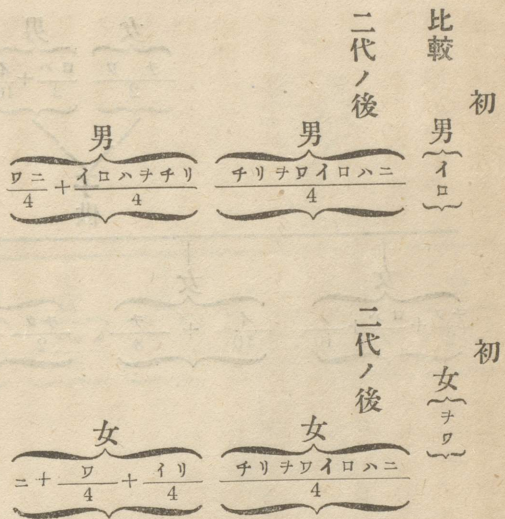 初
比較 男{イロ}
二代ノ後
男
チリヲワイロハニ/4
男
ワニ/4+イロハヲチリ/4
初
女{ヲワ}
二代ノ後
女
チリヲワイロハニ/4
女
ニ+ワ/4+イリ/4